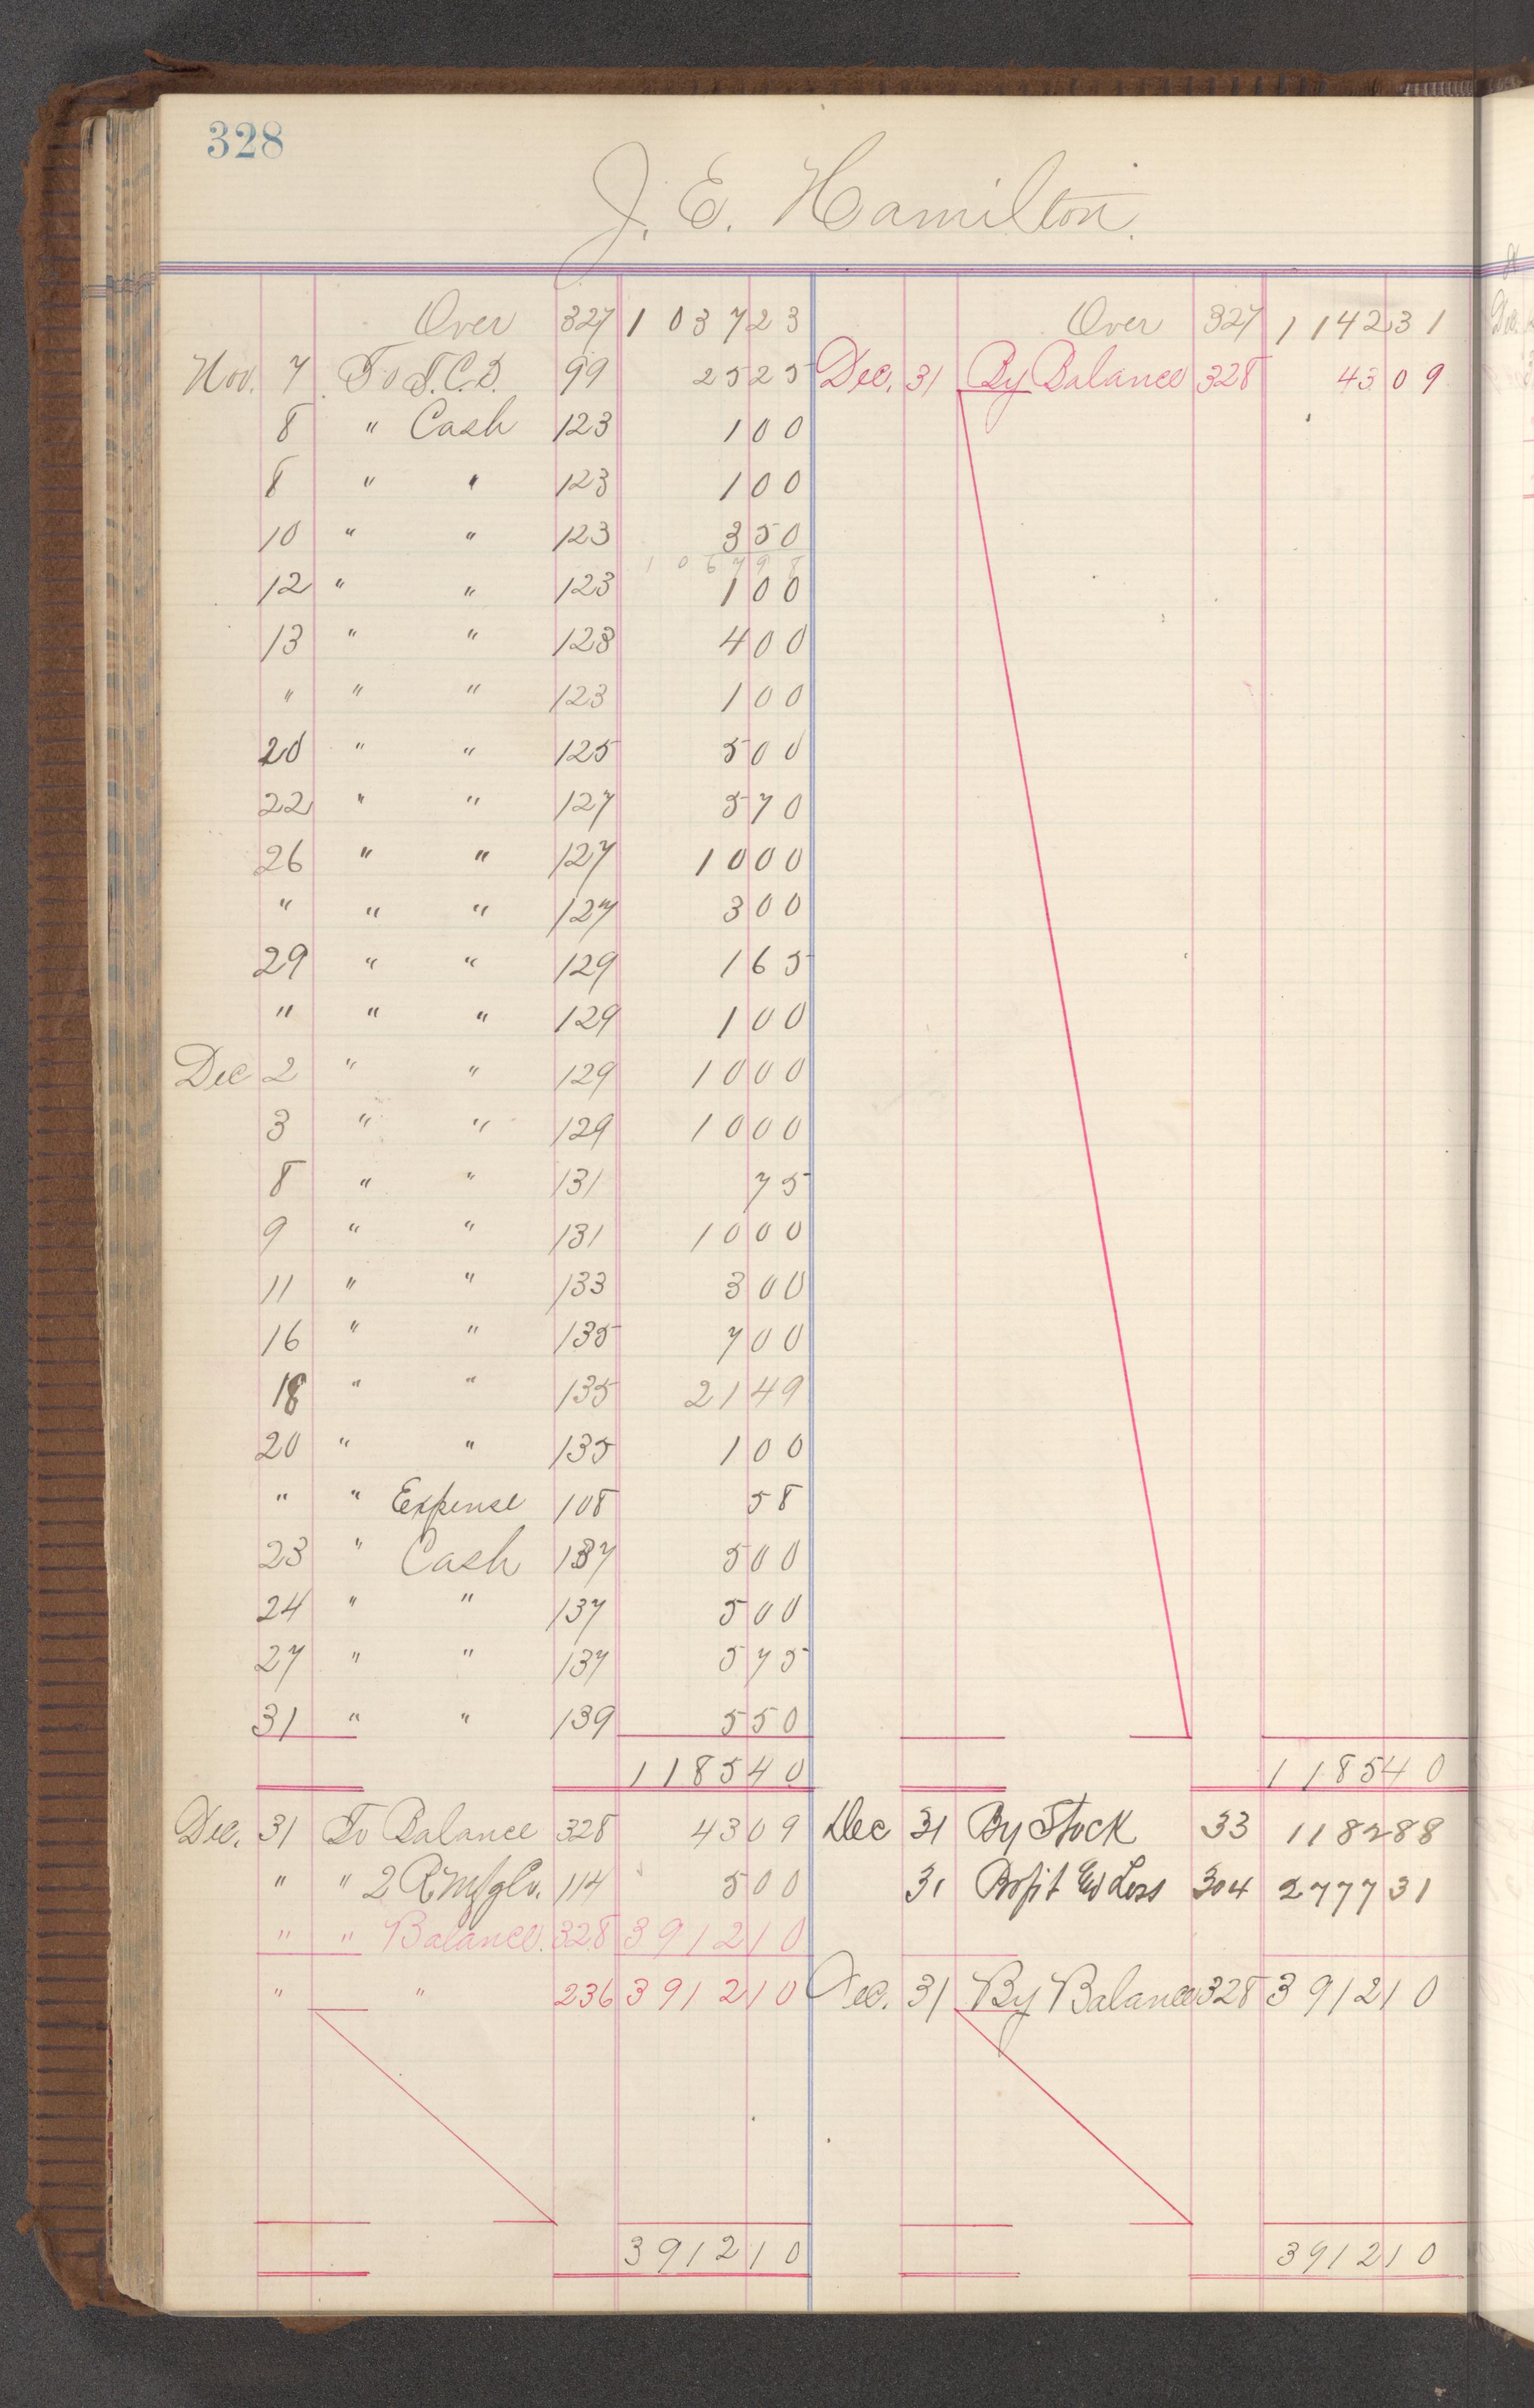 328
J. E. Hamilton.
Over 327 1 037 23 Over 327 1 142 31
Nov. 7 To S.C.D. 99 25 25 Dec. 31 By Balance 328 43 09
8 " Cash 123 1 00
8 " " 123 1 00
10 " " 123 3 50
1 0 6 7 9 8
12 " " 123 1 00
13 " " 123 4 00
" " " 123 1 00
20 " " 125 5 00
22 " " 127 5 70
26 " " 127 10 00
" " " 127 3 00
29 " " 129 1 65
" " " 129 1 00
Dec 2 " " 129 10 00
3 " " 129 10 00
8 " " 131 75
9 " " 131 10 00
11 " " 133 3 00
16 " " 135 7 00
18 " " 135 21 49
20 " " 135 1 00
" " Expense 108 58
23 " Cash 137 5 00
24 " " 137 5 00
27 " " 137 5 75
31 " " 139 5 50
1 185 40 1 185 40
Dec. 31 To Balance 328 43 09 Dec 31 By Stock 33 1182 88
" " 2 R. Mfg Co. 114 5 00 31 Profit & Loss 304 2777 31
" " Balance. 328 3912 10
" " 236 3912 10 Dec. 31 By Balance 328 3912 10
3912 10 3912 10